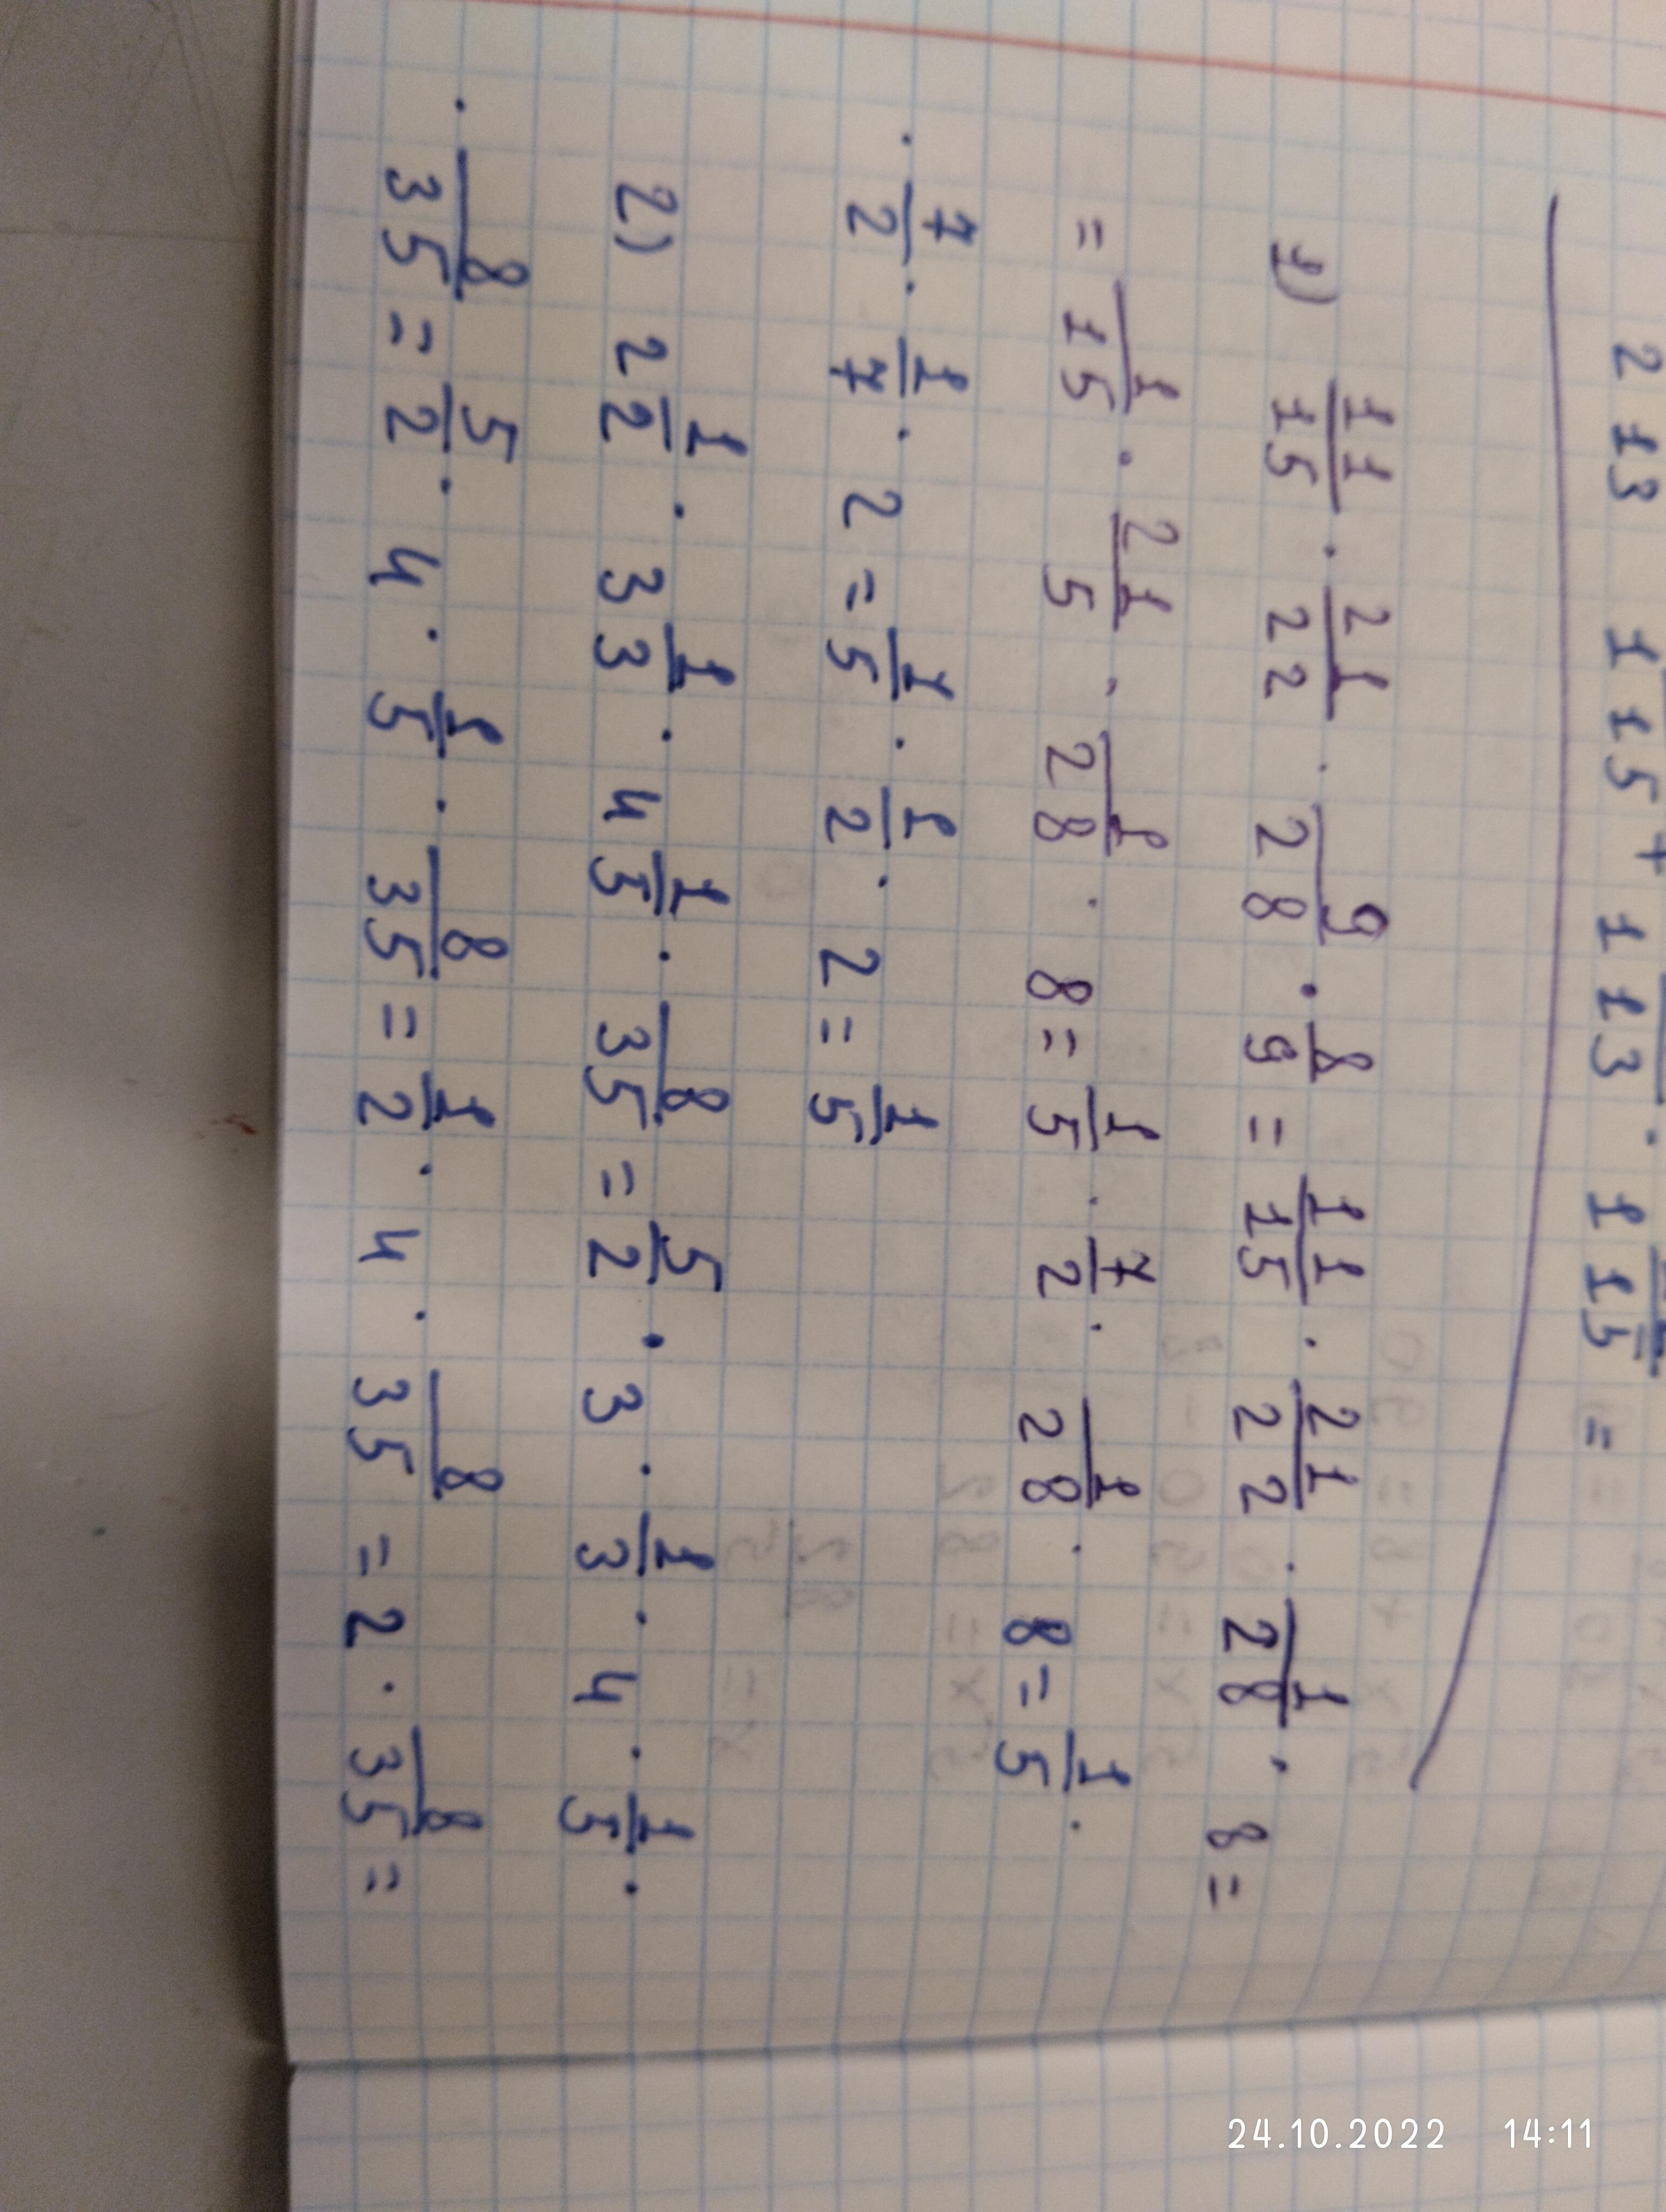 2 13 1 15 + 1 13 · 1 15 =
1) 11/15 · 21/22 · 9/28 · 8/9 = 11/15 · 21/22 · 1/28 · 8 =
= 1/15 · 21/5 · 1/28 · 8 = 1/5 · 7/2 · 1/28 · 8 = 1/5 ·
· 7/2 · 1/7 · 2 = 1/5 · 1/2 · 2 = 1/5
2) 2 1/2 · 3 1/3 · 4 1/5 · 8/35 = 5/2 · 3 · 1/3 · 4 · 1/5 ·
· 8/35 = 5/2 · 4 · 1/5 · 8/35 = 1/2 · 4 · 8/35 = 2 · 8/35 =
24.10.2022 14:11